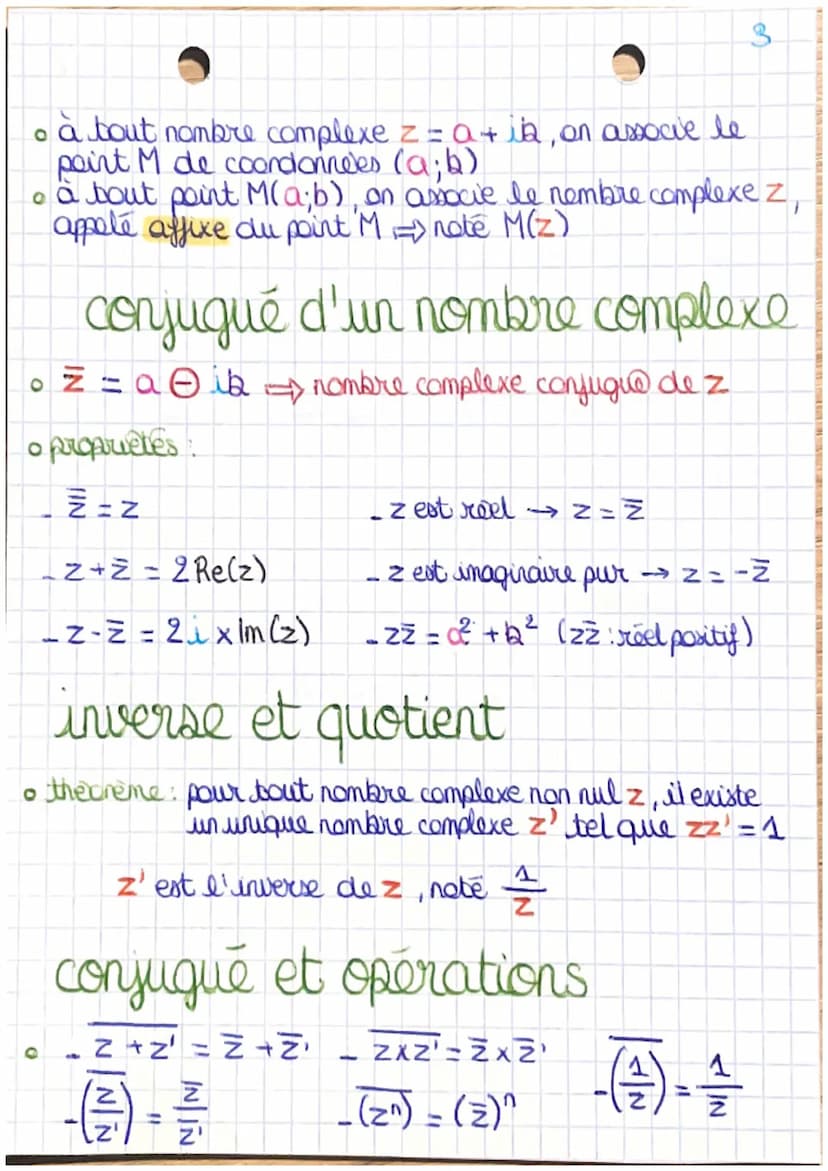 3
o à tout nombre complexe z = a + ib, on associe le
point M de coordonnées (a;b)
o à tout point M(a;b), on associe le nombre complexe z,
appelé affixe du point M ⇒ noté M(z)
conjugué d'un nombre complexe
o z̅ = a ⊖ ib ⇒ nombre complexe conjugué de z
o propriétés :
- z̿ = z
- z est réel → z = z̅
- z + z̅ = 2Re(z)
- z est imaginaire pur → z = -z̅
- z - z̅ = 2i x Im(z)
- zz̅ = a² + b² (zz̅ : réel positif)
inverse et quotient
o théorème : pour tout nombre complexe non nul z, il existe
un unique nombre complexe z' tel que zz' = 1
z' est l'inverse de z, noté 1/z
conjugué et opérations
o - \overline{z + z'} = z̅ + z̅' - \overline{z x z'} = z̅ x z̅' - \overline{(1/z)} = 1/z̅
- \overline{(z/z')} = z̅/z̅' - \overline{(zⁿ)} = (z̅)ⁿ